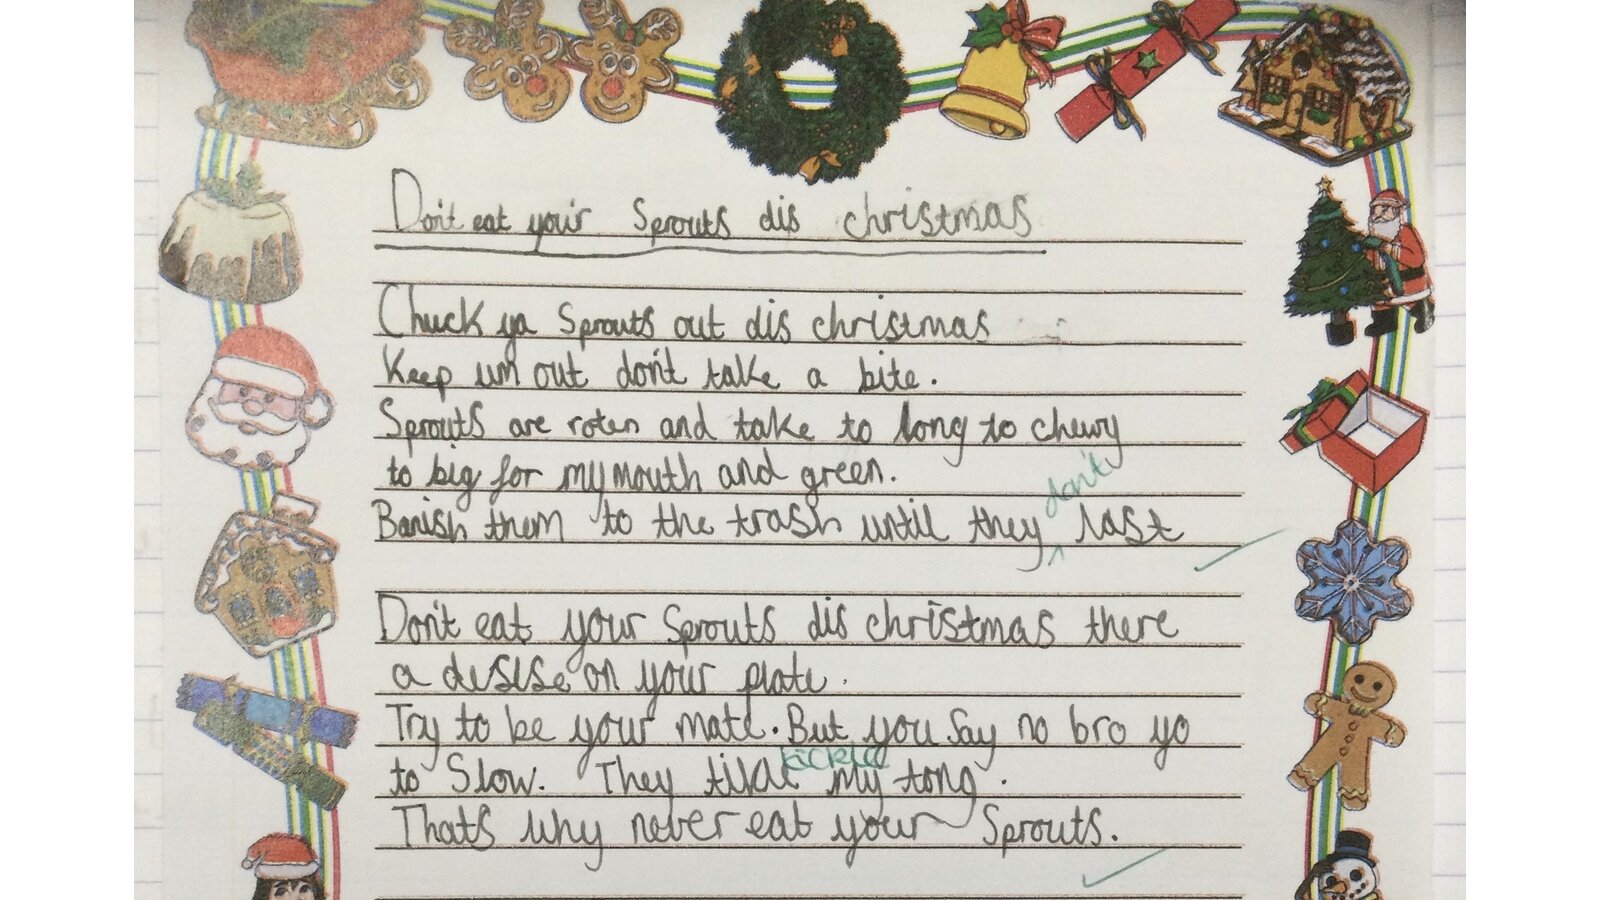 Don't eat your Sprouts dis christmas
Chuck ya Sprouts out dis christmas
Keep um out don't take a bite.
Sprouts are roten and take to long to chewy
to big for my mouth and green.
don't
Banish them to the trash until they last
Don't eat your Sprouts dis christmas there
a desise on your plate.
Try to be your mate. But you say no bro yo
tickle
to Slow. They tikal my tong.
Thats why never eat your Sprouts.